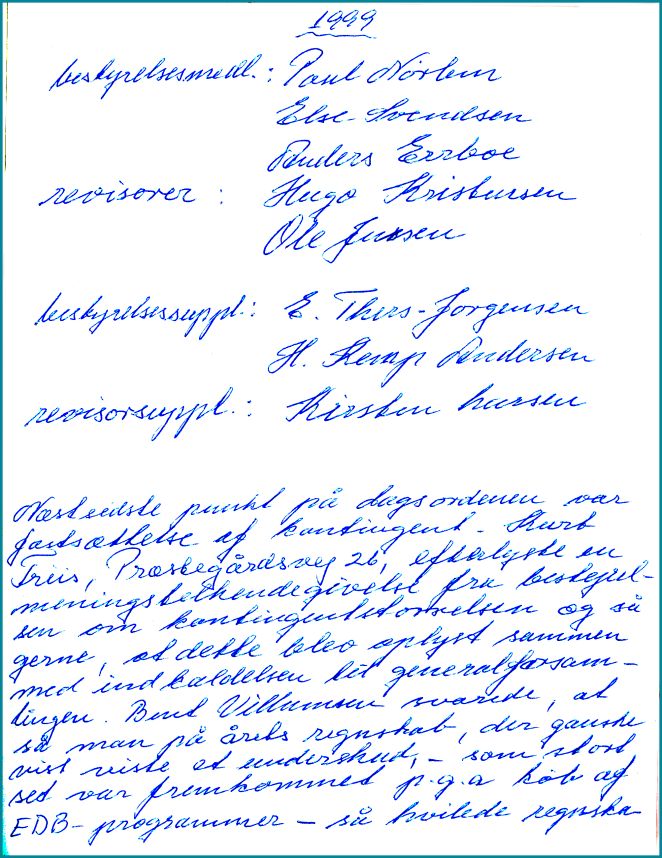 1999
bestyrelsesmedl.: Poul Nörlem
Else Svendsen
Anders Errboe
revisorer : Hugo Kristensen
Ole Jensen
bestyrelsessuppl.: E. Thers-Jörgensen
H. Kemp Andersen
revisorsuppl.: Kirsten Larsen
Næstsidste punkt på dagsordenen var
fastsættelse af kontingent - Kurt
Treis, Præstegårdsvej 26, efterlyste en
meningsbelkendegivelse fra bestyrel-
sen om kontingentstørrelsen og så
gerne, at dette blev oplyst sammen
med indkaldelsen til generalforsam-
lingen. Bent Villumsen svarede, at
så man på årets regnskab, der ganske
vist viste et underskud, - som stort
set var fremkommet p.g.a køb af
EDB-programmer - så hvilede regnska